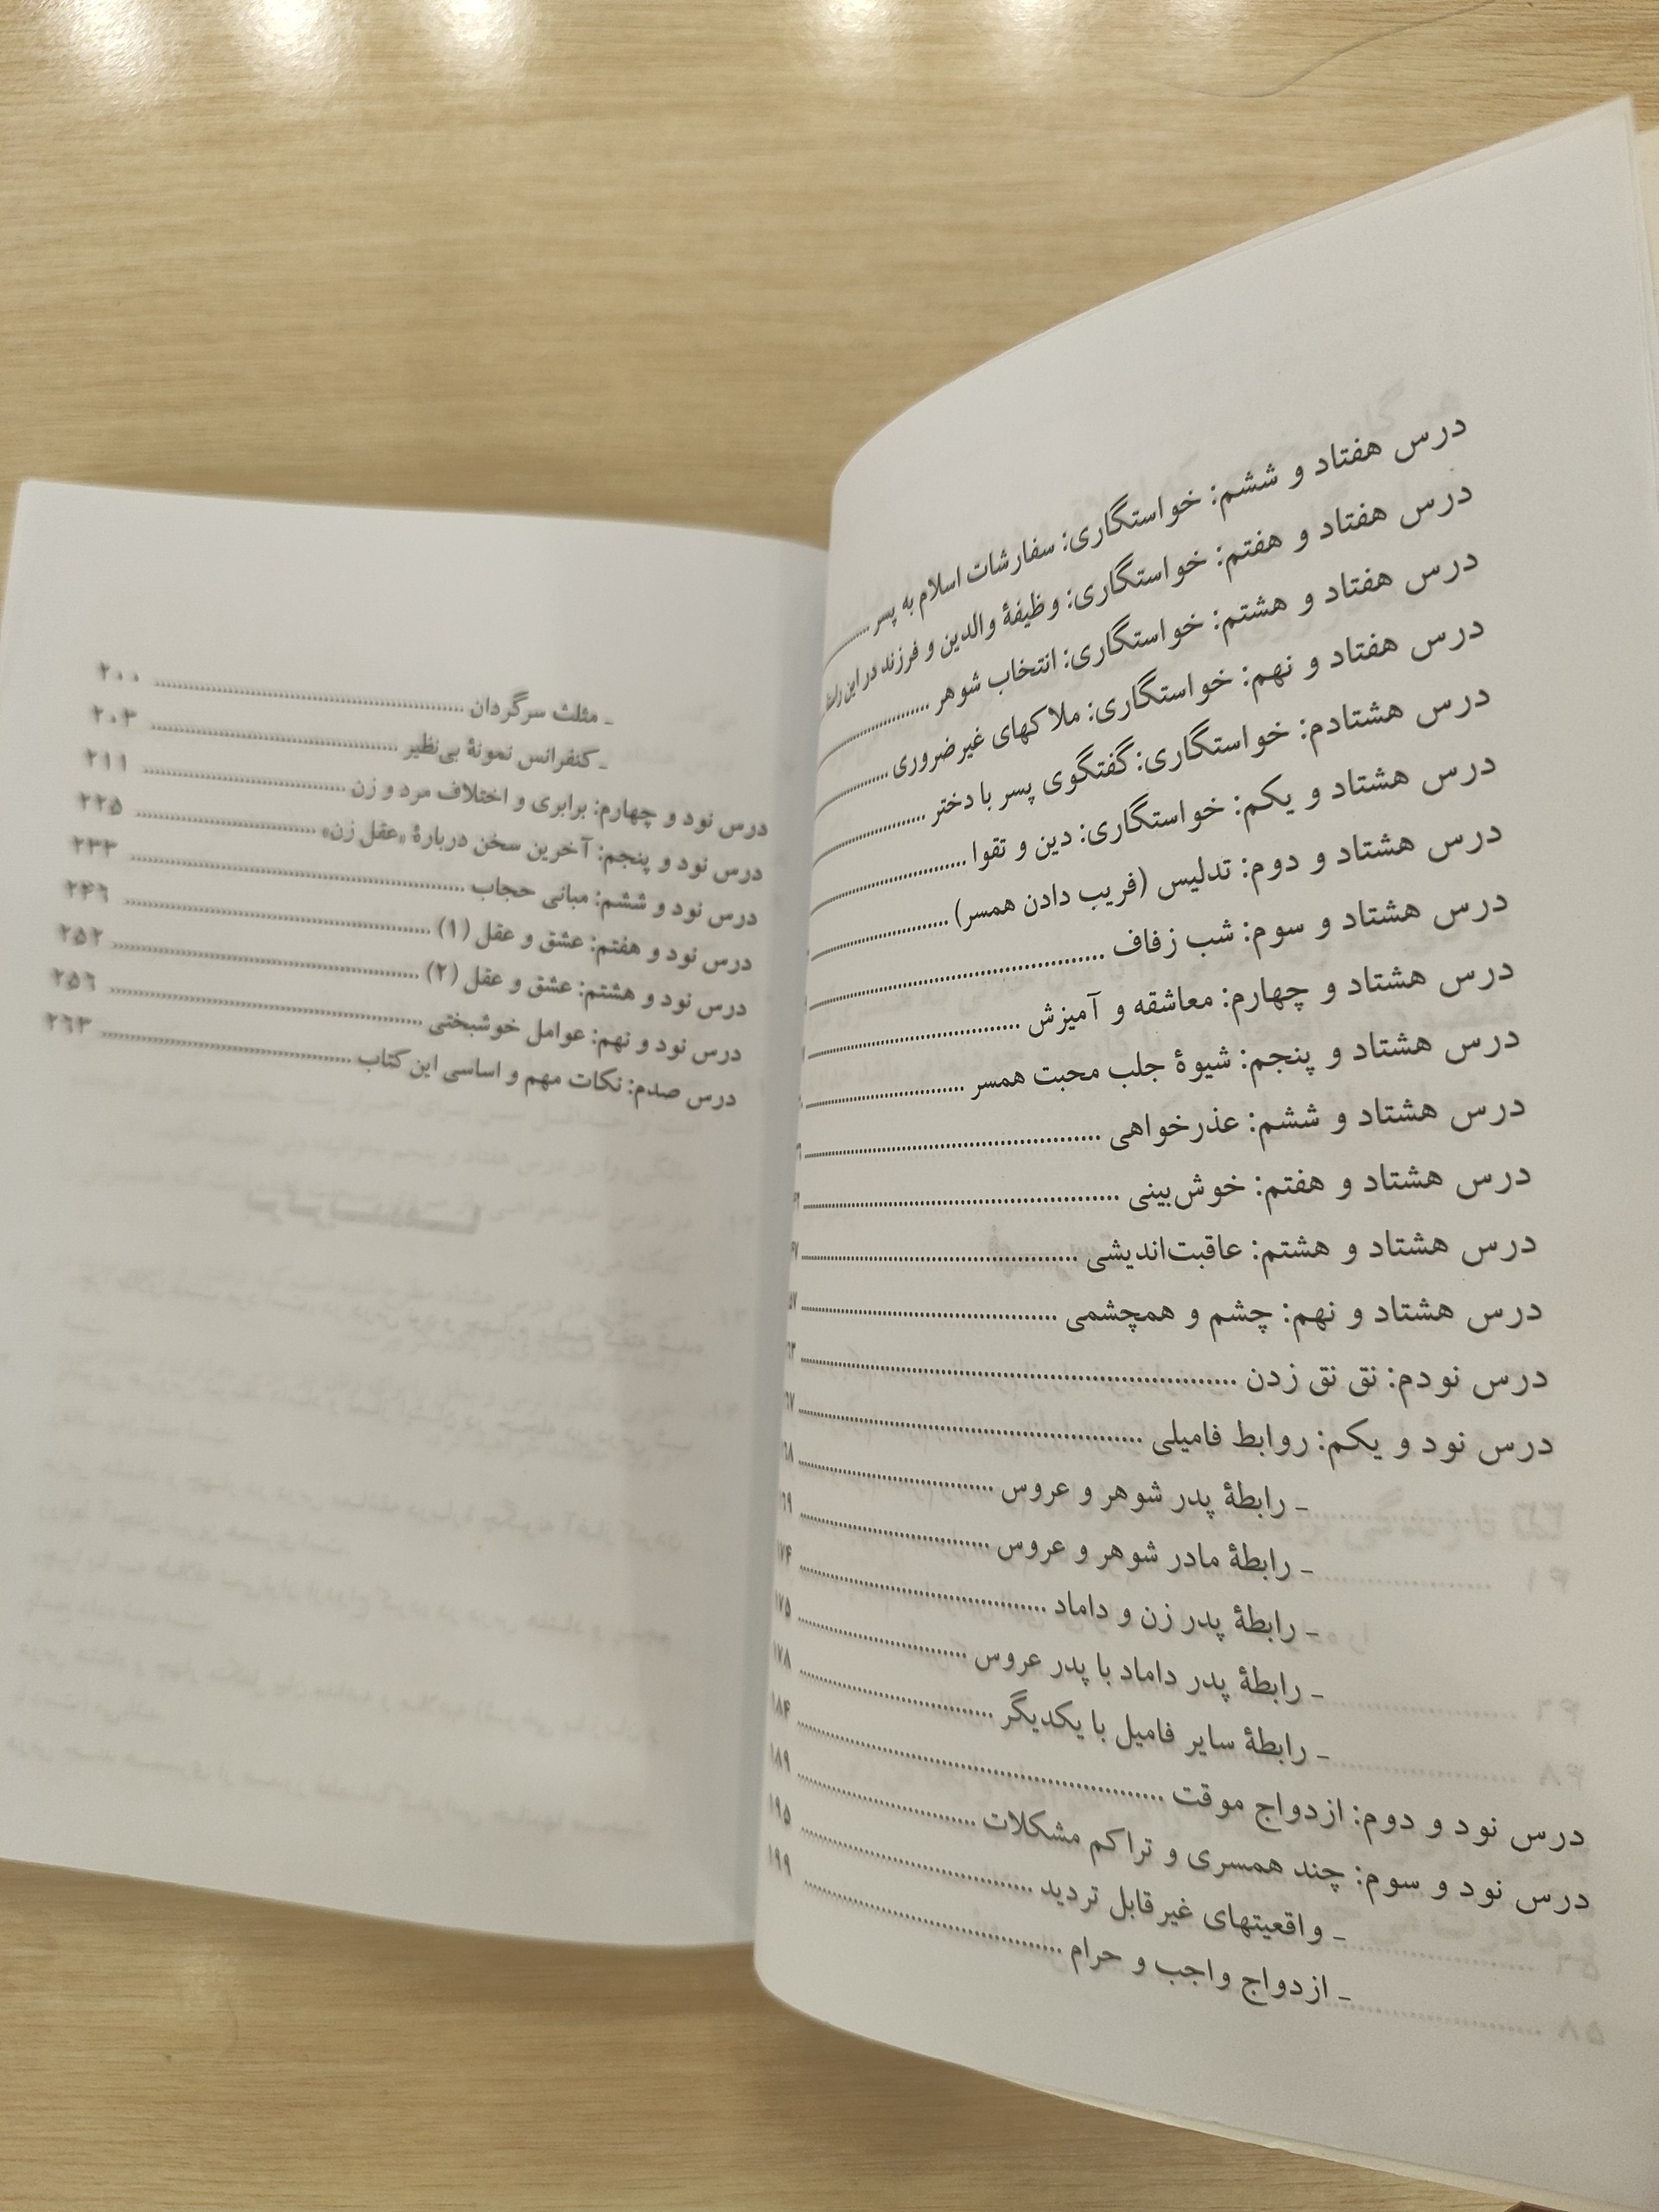 درس هفتاد و ششم: خواستگاری: سفارشات اسلام به پسر
درس هفتاد و هفتم: خواستگاری: وظیفهٔ والدین و فرزند در این
درس هفتاد و هشتم: خواستگاری: انتخاب شوهر
درس هفتاد و نهم: خواستگاری: ملاکهای غیرضروری
درس هشتادم: خواستگاری: گفتگوی پسر با دختر
درس هشتاد و یکم: خواستگاری: دین و تقوا
درس هشتاد و دوم: تدلیس (فریب دادن همسر)
درس هشتاد و سوم: شب زفاف
درس هشتاد و چهارم: معاشقه و آمیزش
درس هشتاد و پنجم: شیوهٔ جلب محبت همسر
درس هشتاد و ششم: عذرخواهی
درس هشتاد و هفتم: خوش‌بینی
درس هشتاد و هشتم: عاقبت‌اندیشی
درس هشتاد و نهم: چشم و همچشمی
درس نودم: نق نق زدن
درس نود و یکم: روابط فامیلی
ـ رابطهٔ پدر شوهر و عروس
ـ رابطهٔ مادر شوهر و عروس
ـ رابطهٔ پدر زن و داماد
ـ رابطهٔ پدر داماد با پدر عروس ۱۷۵
ـ رابطهٔ سایر فامیل با یکدیگر ۱۷۸
درس نود و دوم: ازدواج موقت ۱۸۴
درس نود و سوم: چند همسری و تراکم مشکلات ۱۸۹
ـ واقعیتهای غیرقابل تردید ۱۹۵
ـ ازدواج واجب و حرام ۱۹۹
ـ مثلث سرگردان ۲۰۰
ـ کنفرانس نمونهٔ بی‌نظیر ۲۰۳
درس نود و چهارم: برابری و اختلاف مرد و زن ۲۱۱
درس نود و پنجم: آخرین سخن دربارهٔ «عقل زن» ۲۲۵
درس نود و ششم: مبانی حجاب ۲۳۳
درس نود و هفتم: عشق و عقل (۱) ۲۴۶
درس نود و هشتم: عشق و عقل (۲) ۲۵۲
درس نود و نهم: عوامل خوشبختی ۲۵۶
درس صدم: نکات مهم و اساسی این کتاب ۲۶۳